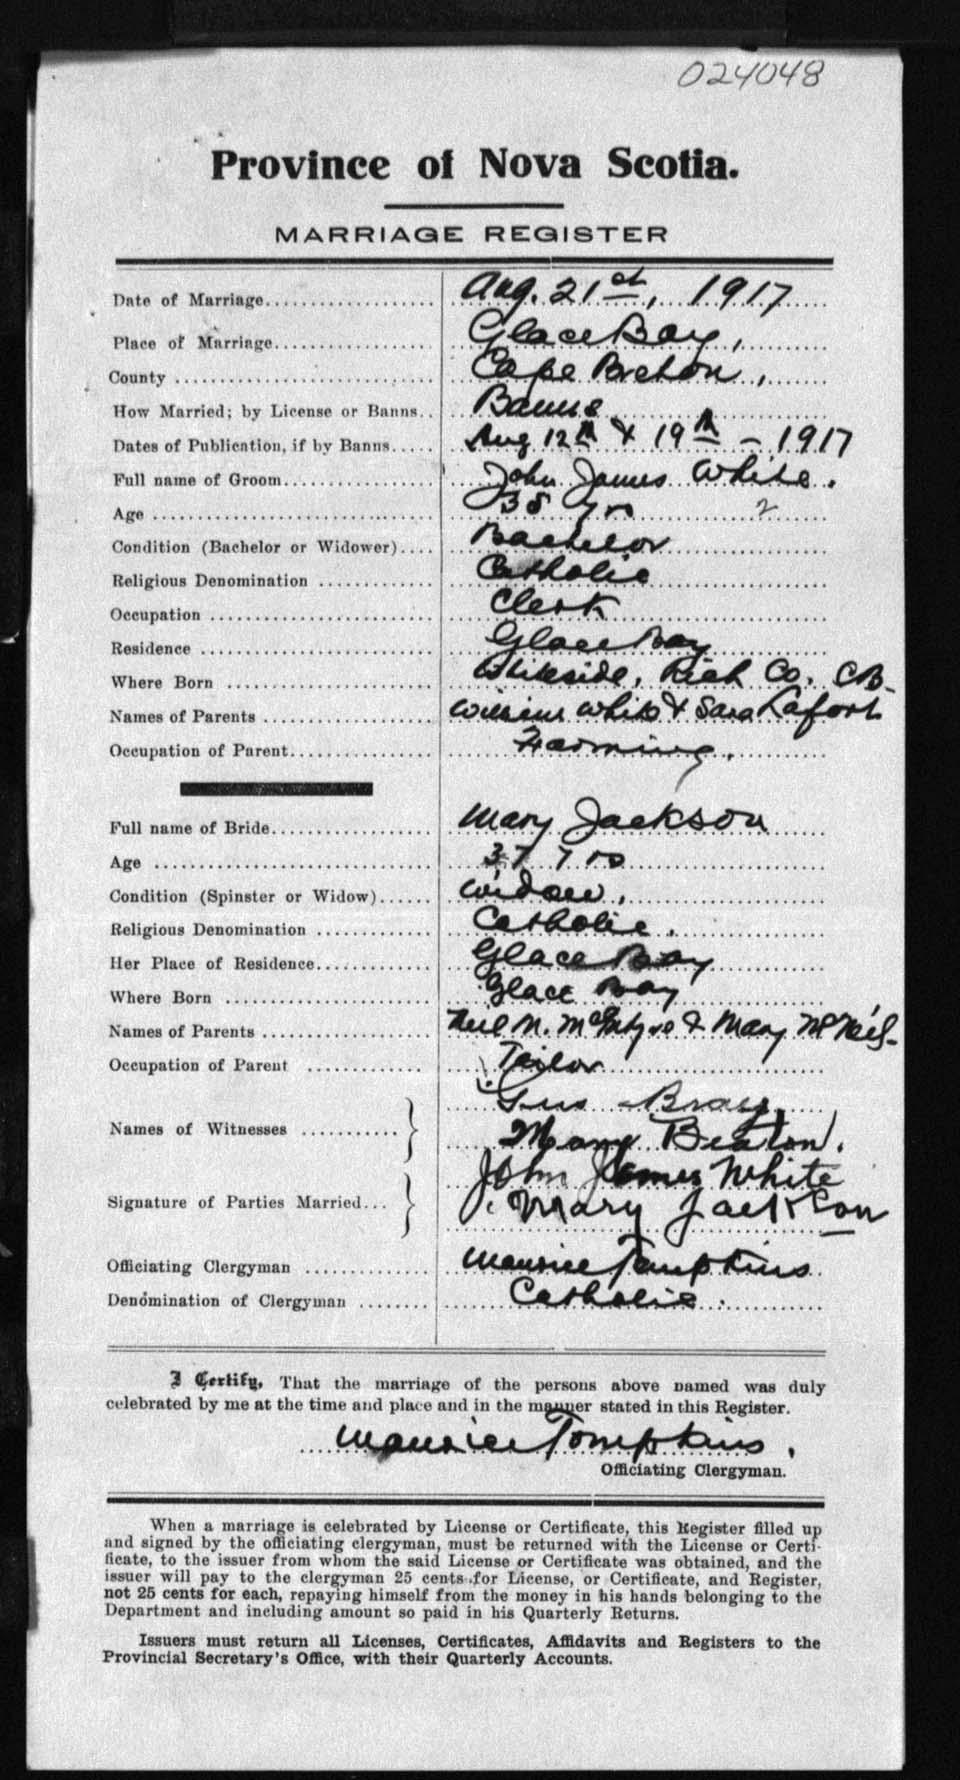 024048
Province of Nova Scotia.
MARRIAGE REGISTER
Date of Marriage.................. Aug. 21st, 1917
Place of Marriage................. Glace Bay,
County ........................... Cape Breton,
How Married; by License or Banns.. Banns
Dates of Publication, if by Banns..... Aug 12th & 19th - 1917
Full name of Groom................ John James White.
Age .............................. 38 yrs 2
Condition (Bachelor or Widower).... Bachelor
Religious Denomination ............ Catholic
Occupation ....................... Clerk
Residence ........................ Glace Bay
Where Born ....................... Whiteside, Rich Co. CB.
Names of Parents ................. White & Sara Lafort
Occupation of Parent.............. Farming.
Full name of Bride................. Mary Jackson
Age .............................. 37 yrs
Condition (Spinster or Widow)...... Widow.
Religious Denomination ............ Catholic.
Her Place of Residence............ Glace Bay
Where Born ....................... Glace Bay
Names of Parents ................. Neil N. McIntyre & Mary McNeil-
Occupation of Parent ............ Tailor
Gus Bray,
Names of Witnesses ........... Mary Beaton.
John James White
Signature of Parties Married... Mary Jackson
Officiating Clergyman ............. Maurice Tompkins
Denomination of Clergyman ........ Catholic.
I Certify, That the marriage of the persons above named was duly
celebrated by me at the time and place and in the manner stated in this Register.
Maurice Tompkins.
Officiating Clergyman.
When a marriage is celebrated by License or Certificate, this Register filled up
and signed by the officiating clergyman, must be returned with the License or Certi-
ficate, to the issuer from whom the said License or Certificate was obtained, and the
issuer will pay to the clergyman 25 cents for License, or Certificate, and Register,
not 25 cents for each, repaying himself from the money in his hands belonging to the
Department and including amount so paid in his Quarterly Returns.
Issuers must return all Licenses, Certificates, Affidavits and Registers to the
Provincial Secretary's Office, with their Quarterly Accounts.